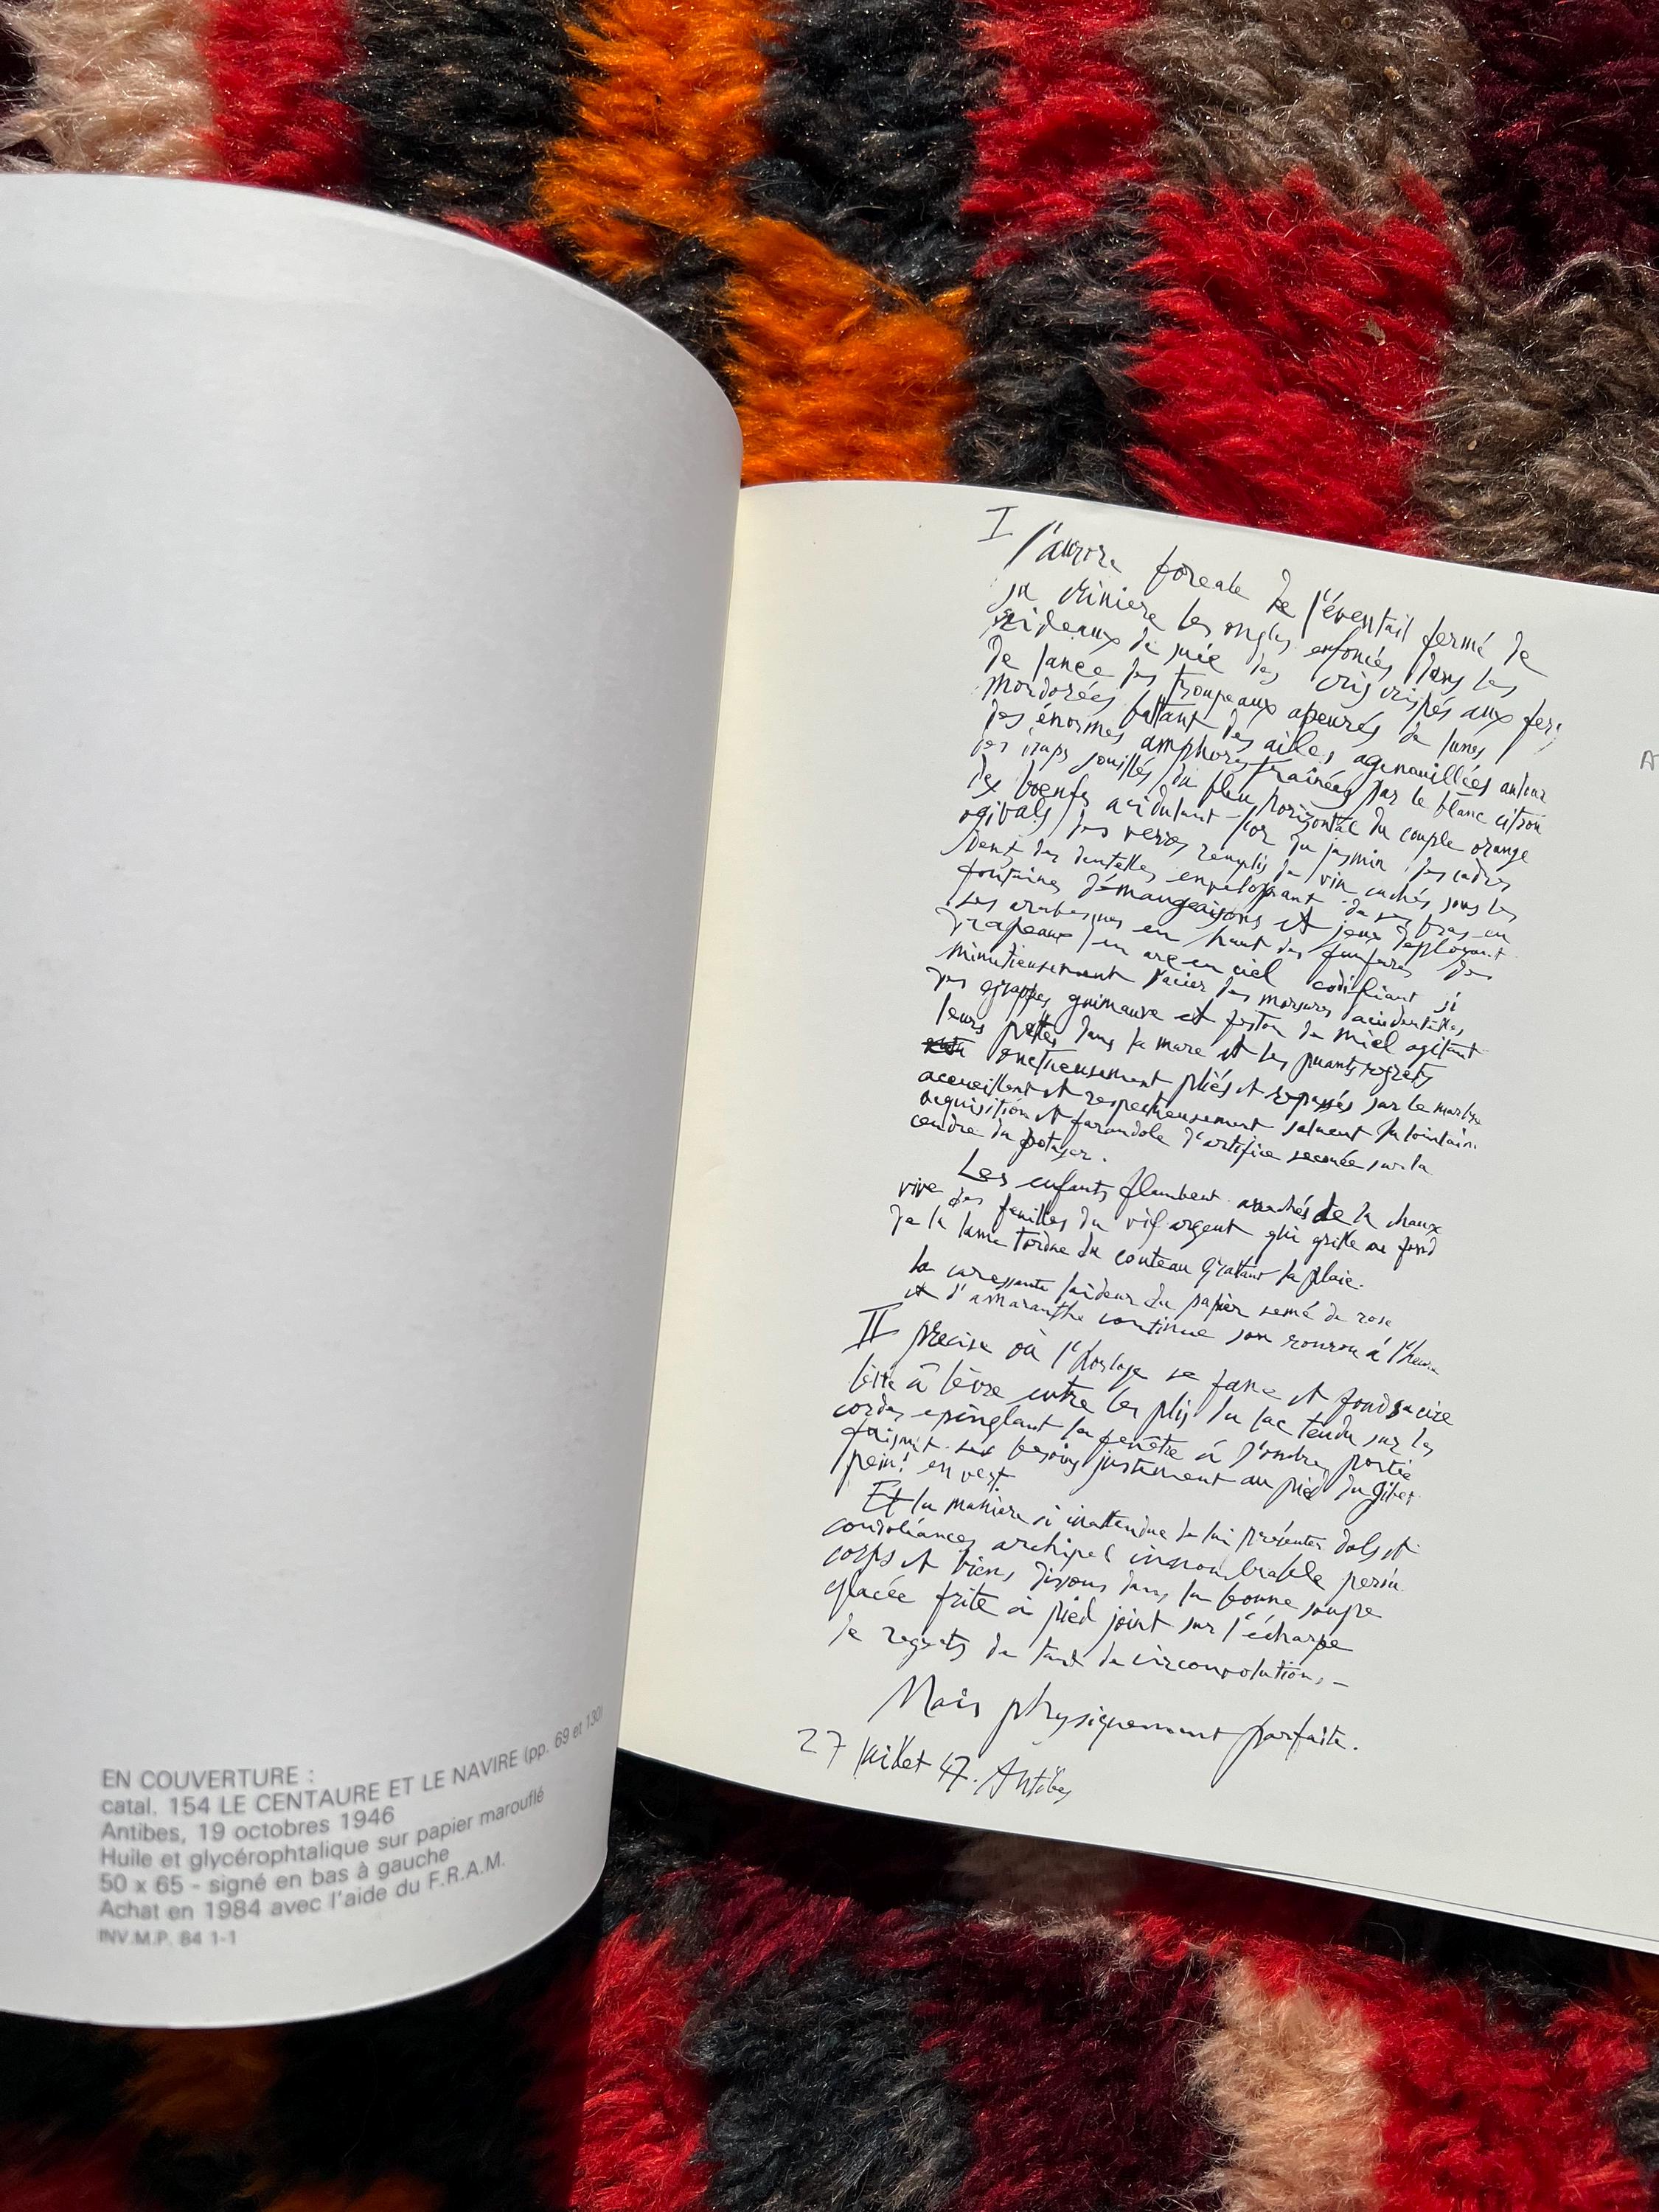 EN COUVERTURE :
catal. 154 LE CENTAURE ET LE NAVIRE (pp. 69 et 130)
Antibes, 19 octobres 1946
Huile et glycérophtalique sur papier marouflé
50 x 65 - signé en bas à gauche
Achat en 1984 avec l'aide du F.R.A.M.
INV.M.P. 84 1-1
I l'aurore boreale de l'éventail fermé de
sa crinière les ongles enfoncés dans les
rideaux de suie des cris crispés aux fers
de lance des troupeaux apeurés de lunes
mordorées battant des ailes agenouillées autour
des énormes amphores traînées par le blanc citron
des draps souillés du bleu horizontal du couple orange
des boeufs acidulant l'or du jasmin des cadres
ogivals des verres remplis de vin cachés sous les
dents des dentelles enveloppant de ses bras en
fontaine démangeaisons et jeux déployant
ses arabesques en haut des fanfares des
drapeaux en arc en ciel codifiant si
minutieusement l'acier des morsures accidentelles
des grappes guimauve et feston de miel agitant
leurs pattes dans la mare et les puants regrets
onctueusement pliés et repassés sur le marbre
accueillent et respectueusement saluent la lointaine
acquisition et farandole d'artifice secouée sur la
cendre du potager.
Les enfants flambent arrachés de la chaux
vive des familles du vif argent qui grille au fond
de la lame tordue du couteau grattant la plaie.
la caressante laideur du papier semé de rose
et d'amaranthe continue son ronron à l'heure
II précise où l'horloge se fane et fond sa cire
lèvre à lèvre entre les plis du lac tendu sur les
cordes epinglant la fenêtre à l'ombre portée
faisant ses besoins justement au pied du gibet
peint en vert.
Et la manière si inattendue de lui présenter dols et
condoléances archipel innombrable perdu
corps et biens disons dans la bonne soupe
glacée frite à pied joint sur l'écharpe
de regrets de tant de circonvolutions.-
Mais physiquement parfaite.
27 juillet 47. Antibes
A